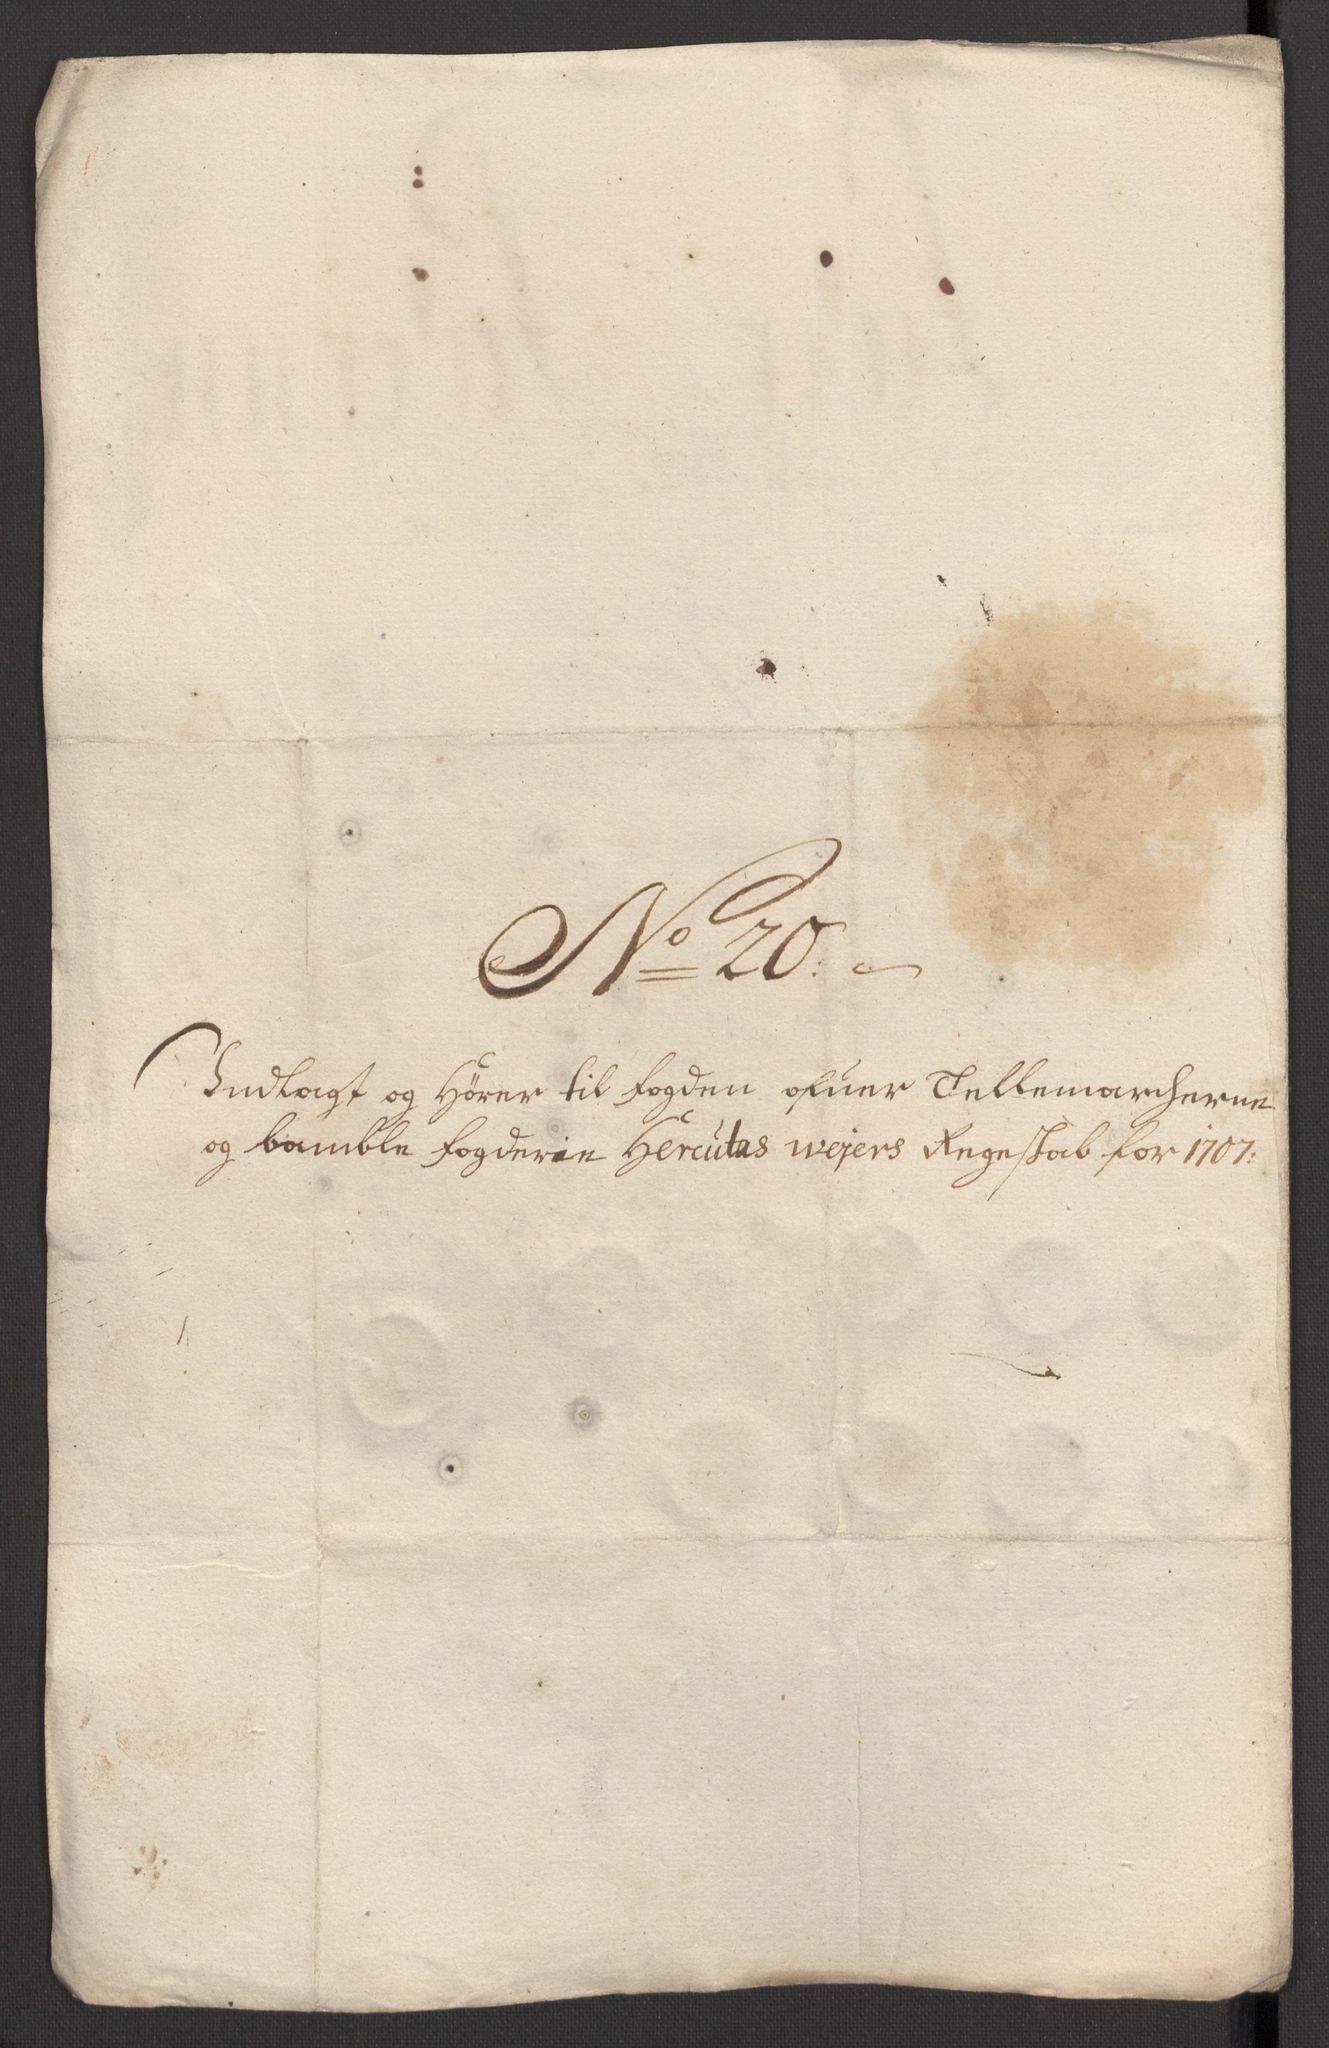 No 20:
Indlagt og Hörer til fogden ofuer Tellemarcherne
og bamble fogderie Herculas wejers Regeskab for 1707: